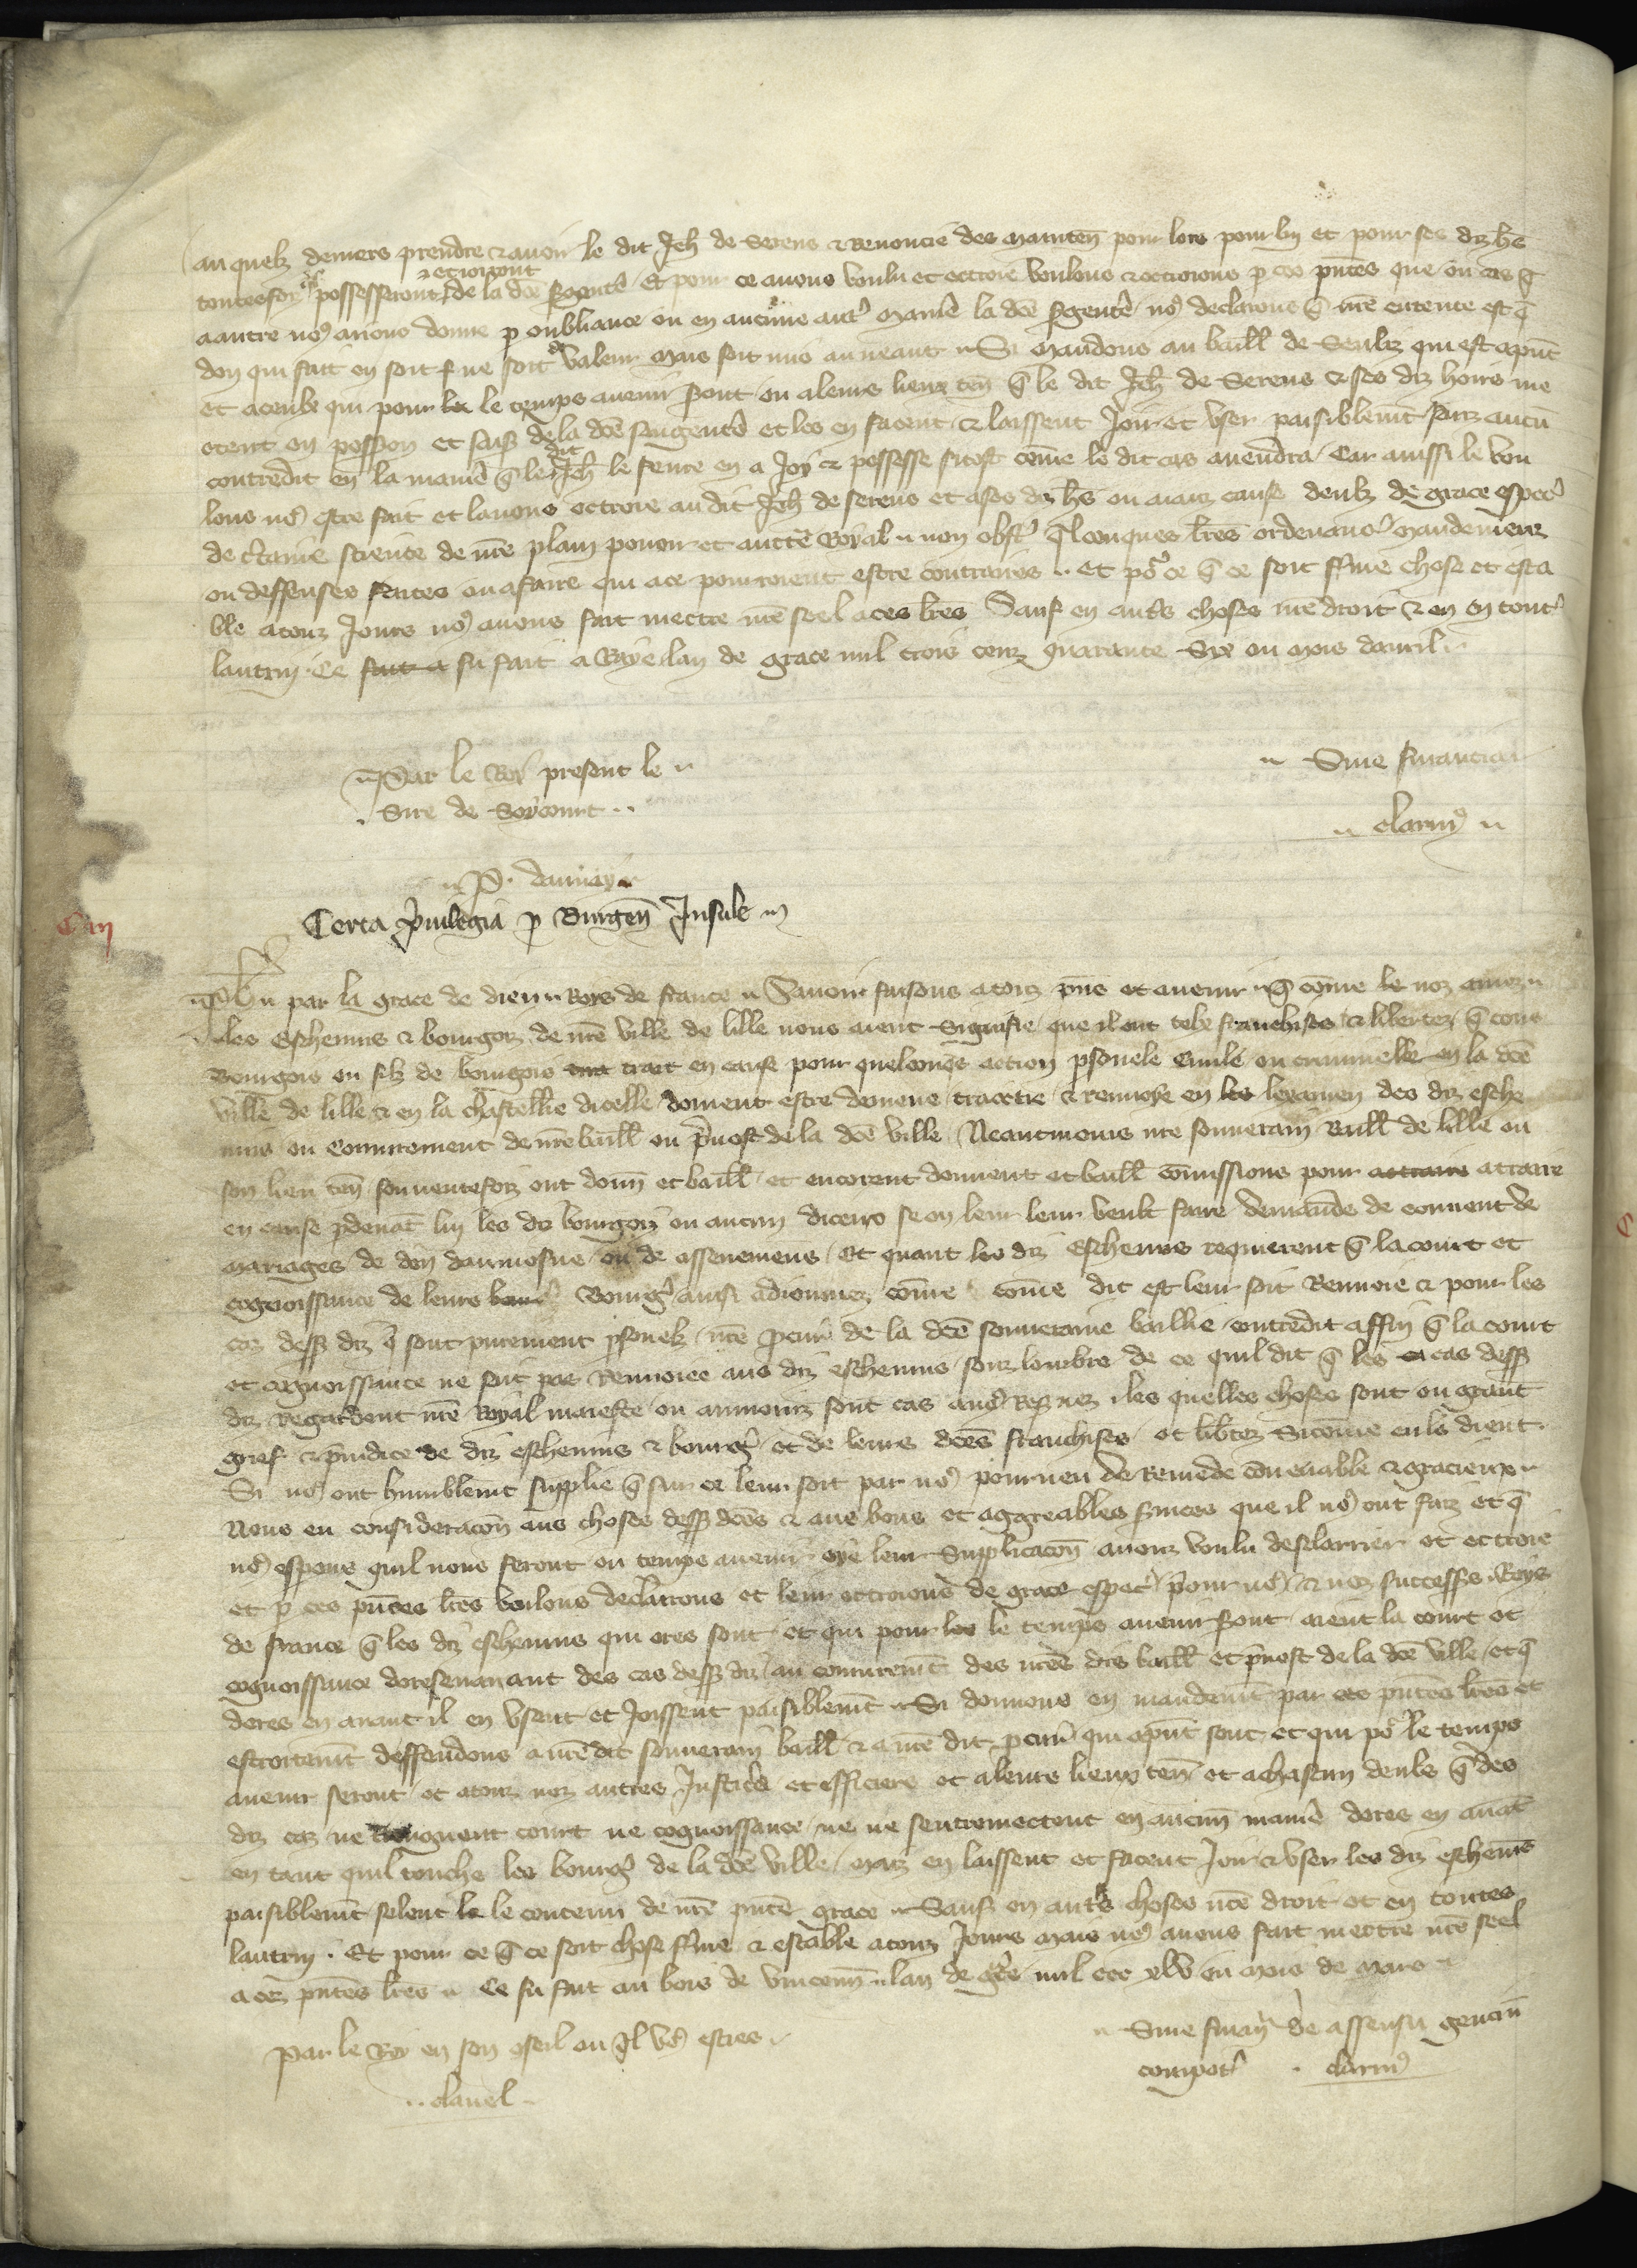 au quelz deniers prendre & avoir le dit Jeh̄ de Serens & renoncie des mainten̄ pour lors pour luy et pour ses diz hr̄s
⁊ et joiront
toutesfoiz possesseront de la dc̄e sergentˀ Et pour ce avons voulu et ottroie voulons & ottroions p̱ ces pn̄tes que ou cas q̄
a autre noꝯ avons donne p̱ oubliance ou en aucune autˀ maniˀe la dc̄e sergentˀe noꝯ declairons q̄ nr̄e entente est q̄
don qui fait en soit ne soit de valeur mais soit mis au neant Si mandons au baill̄ de Senliz qui est a pn̄t
et a ceulx qui pour le temps avenir seront ou a leurs lieux ten̄ q̄ le dit Jeh̄ de Serens & ses diz hoirs me
ctent en possion et saisi de la dc̄e sergentˀ et les en facent & laissent joir et user paisiblemt̄ sanz aucū
contredit en la maniˀe q̄ le dit Jeh̄ le fevre en a joy & possesse sitost com̄e le dit cas avendra Car aussi le vou
lons noꝯ estre fait et lavons ottroie au dit Jeh̄ de serens et a ses diz hr̄s ou aianz cause deulz de grace especˀ
de cˀtaine science de nr̄e plain povoir et auctˀe Royal non obstˀ q̄lconques lr̄es ordenancˀ mandemenz
ou deffenses faites ou a faire qui a ce pourroient estre contraires Et poˀ ce q̄ ce soit ferme chose et esta
ble a touz jours noꝯ avons fait mectre nr̄e seel a ces lr̄es Sauf en autˀs choses nr̄e droit & en tout
lautruy Ce fait a fu fait a Roye lan de grace mil trois cenz quarante Six ou mois davril
Par le Roy present le
Sire de Soycourt
Sine financia
clarinꝯ
P. daunay
Certa pˀvilegia p̱ Burgen̄ Insule
C iii
Ph par la grace de dieu Roys de france Savoir faisons a touz pn̄s et avenir q̄ com̄e le noz amez
les Eschevins & bourgois de nr̄e ville de lille nous aient Signifie que il ont telx franchises & libertez q̄ tous
Bourgois ou filz de bourgois trait en cause pour quelconqs action p̱sonele Civile ou criminelle en la dc̄e
ville de lille & en la chastellie dicelle doivent estre demene traictie & renvoye en les lexamen des diz esche
vins ou conjurement de nr̄e baill̄ ou p̄vost de la dc̄e ville Neantmoins nr̄e souverain Baill̄ de lille ou
son lieu ten̄ souventefoiz ont donn̄ et baill̄ et encorent donnent et baill̄ com̄issions pour attraire attraire
en cause p̱devāt luy les diz bourgois ou aucun diceux se on leur leur veult faire demande de convent de
mariages de don daumosne ou de assenemens Et quant les diz Eschevins requierent q̄ la court et
cognoissance de leurs Bourgˀ ainsi adiournez com̄e com̄e dit est leur soit Renvoie & pour les
cas dess diz q̄ sont purement p̱sonelz nr̄e p̱curˀ de la dc̄e souveraine baillie contredit affin q̄ la court
et cognoissance ne soit pas Renvoiee aus diz eschevins souz lombre de ce quil dit q̄ les cas dess
diz Regardent nr̄e Royal maieste ou a nous sont cas a noꝯ Reservez les quelles choses sont ou grant
grief & p̄judice de diz eschevins & bourgˀ et de leurs dc̄es franchises et libtez Si com̄e eulx dient
Si noꝯ ont humblemt̄ supplie q̄ sur ce leur soit par noꝯ pourveu de Remede convenable & gracieux
Nous eu consideracon̄ aus choses dess dc̄es & aus bons et aggreables services que il noꝯ ont faiz et q̄
noꝯ espons quil nous feront ou temps avenir oye leur Supplicacon̄ avons voulu desclairier et ottroie
et p̱ ces pn̄tes lr̄es voulons declairons et leur ottroions de grace especˀ pour noꝯ & noz success̄ Roys
de france q̄ les diz eschevins qui ores sont et qui pour les le temps avenir seront aient la court et
cognoissance doresenavant des cas dess diz au conjuremt̄ des nr̄es diz baill̄ et p̄vost de la dc̄e ville Et q̄
dores en avant il en usent et joissent paisiblemt̄ Si donnons en mandemt̄ par ces pn̄tes lr̄es et
estroitemt̄ deffendons a nr̄e dit souverain baill̄ & a nr̄e dit p̱curˀ qui a pn̄t sont et qui poˀ le temps
avenir seront et a touz noz autres Justicˀs et officiers et a leurs lieux ten̄ et a chascun deulx q̄ des
diz cas ne tiengnent court ne cognoissance ne ne sentremectent en aucun̄ maniˀe dores en avāt
en tant quil touche les bourgˀ de la dc̄e ville Maiz en laissent et facent joir & user les diz eschevīs
paisiblemt̄ selonc le contenu de nr̄e pn̄te grace Sauf en autˀs choses nr̄e droit et en toutes
lautruy. Et pour ce q̄ ce soit chose ferme & estable a touz jours mais noꝯ avons fait mectre nr̄e seel
a ces pn̄tes lr̄es Ce fu fait au bois de vincenn̄ lan de grˀce mil ccc xlv ou mois de mars
Par le Roy en son 9seil ou Il voꝯ esties
clavel
Sine finanˀ de assensu genciū
compotˀ clarinꝯ